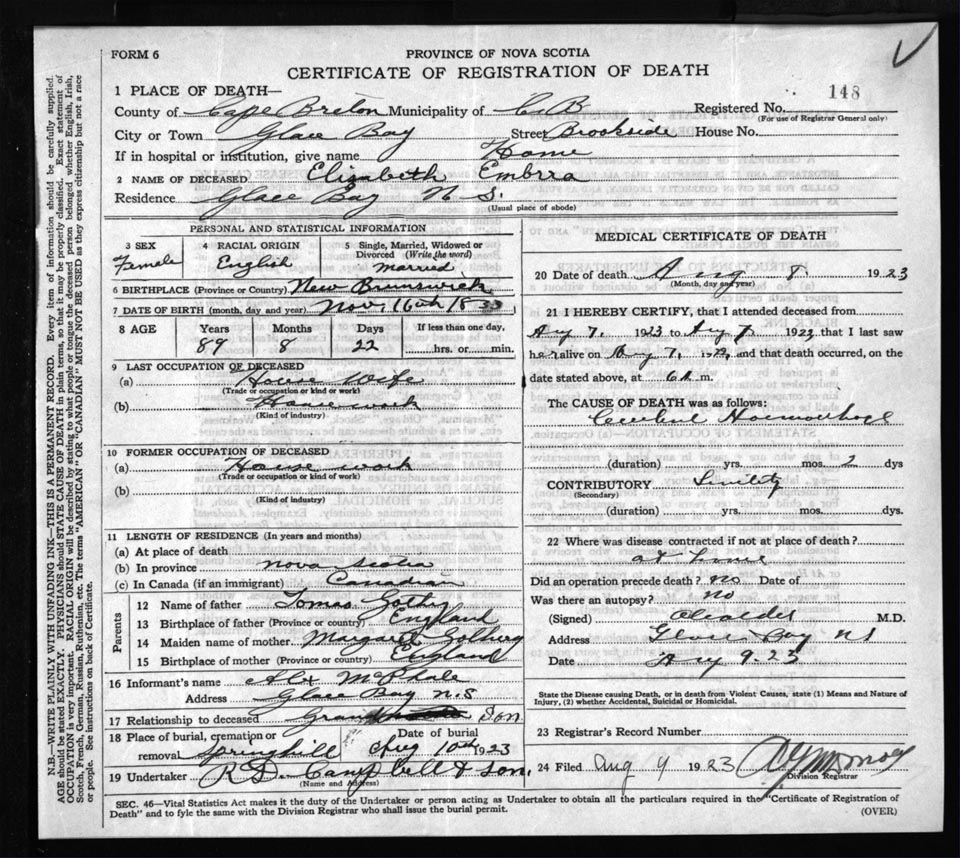 FORM 6
PROVINCE OF NOVA SCOTIA
CERTIFICATE OF REGISTRATION OF DEATH
1 PLACE OF DEATH—
148
County of Cape Breton Municipality of C B Registered No.
(For use of Registrar General only)
City or Town Glace Bay Street Brookside House No.
If in hospital or institution, give name Home
2 NAME OF DECEASED Elizabeth Embrra
Residence Glace Bay N S.
(Usual place of abode)
PERSONAL AND STATISTICAL INFORMATION
3 SEX 4 RACIAL ORIGIN 5 Single, Married, Widowed or Divorced (Write the word)
Female English married
6 BIRTHPLACE (Province or Country) New Brunswick
7 DATE OF BIRTH (month, day and year) Nov, 16th 1833
8 AGE Years Months Days If less than one day,
89 8 22 hrs. or min.
9 LAST OCCUPATION OF DECEASED
(a) House Wife
(Trade or occupation or kind of work)
(b) House work
(Kind of industry)
10 FORMER OCCUPATION OF DECEASED
(a) House work
(Trade or occupation or kind of work)
(b)
(Kind of industry)
11 LENGTH OF RESIDENCE (In years and months)
(a) At place of death
(b) In province nova scotia
(c) In Canada (if an immigrant) Canadian
Parents
12 Name of father Tomas
13 Birthplace of father (Province or country) England
14 Maiden name of mother Margaret
15 Birthplace of mother (Province or country) England
16 Informant's name Alex McPhale
Address Glace Bay n.s
17 Relationship to deceased Grand Son
18 Place of burial, cremation or removal Springhill Date of burial Aug 10th 1923
19 Undertaker R D. Campbell & son,
(Name and Address)
MEDICAL CERTIFICATE OF DEATH
20 Date of death Aug 8. 1923
(Month, day and year)
21 I HEREBY CERTIFY, that I attended deceased from
Aug 7, 1923 to Aug 7 1923, and that I last saw
her alive on Aug 7, and that death occurred, on the
date stated above, at 6 a. m.
The CAUSE OF DEATH was as follows:
Cerebral Haemorrhage
(duration) yrs. mos. 2 dys
CONTRIBUTORY Senility
(Secondary)
(duration) yrs. mos. dys.
22 Where was disease contracted if not at place of death?
at home
Did an operation precede death? no Date of
Was there an autopsy? no
(Signed) M.D.
Address Glace Bay NS
Date Aug 9-23
State the Disease causing Death, or in death from Violent Causes, state (1) Means and Nature of
Injury, (2) whether Accidental, Suicidal or Homicidal.
23 Registrar's Record Number
24 Filed Aug 9 1923
Division Registrar
SEC. 46—Vital Statistics Act makes it the duty of the Undertaker or person acting as Undertaker to obtain all the particulars required in the "Certificate of Registration of
Death" and to fyle the same with the Division Registrar who shall issue the burial permit.
(OVER)
N.B.—WRITE PLAINLY WITH UNFADING INK—THIS IS A PERMANENT RECORD. Every item of information should be carefully supplied.
AGE should be stated EXACTLY. PHYSICIANS should STATE CAUSE OF DEATH in plain terms, so that it may be properly classified. Exact statement of
OCCUPATION is very important. RACIAL ORIGIN will be described by stating to what people or tongue the deceased person belonged whether English, Irish,
Scotch, French, German, Russian, Ruthenian, etc. The terms "AMERICAN" OR "CANADIAN" MUST NOT BE USED as they express citizenship but not a race
or people. See instructions on back of Certificate.